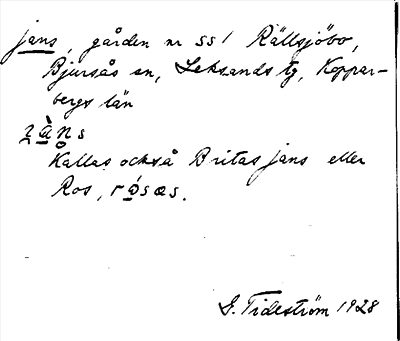 jans, gården nr ss 1 Rällsjöbo,
Bjursås sn, Leksands tg, Koppar-
bergs län
Kallas också Britas jans eller
Ros, rósas.
G. Tideström 1928